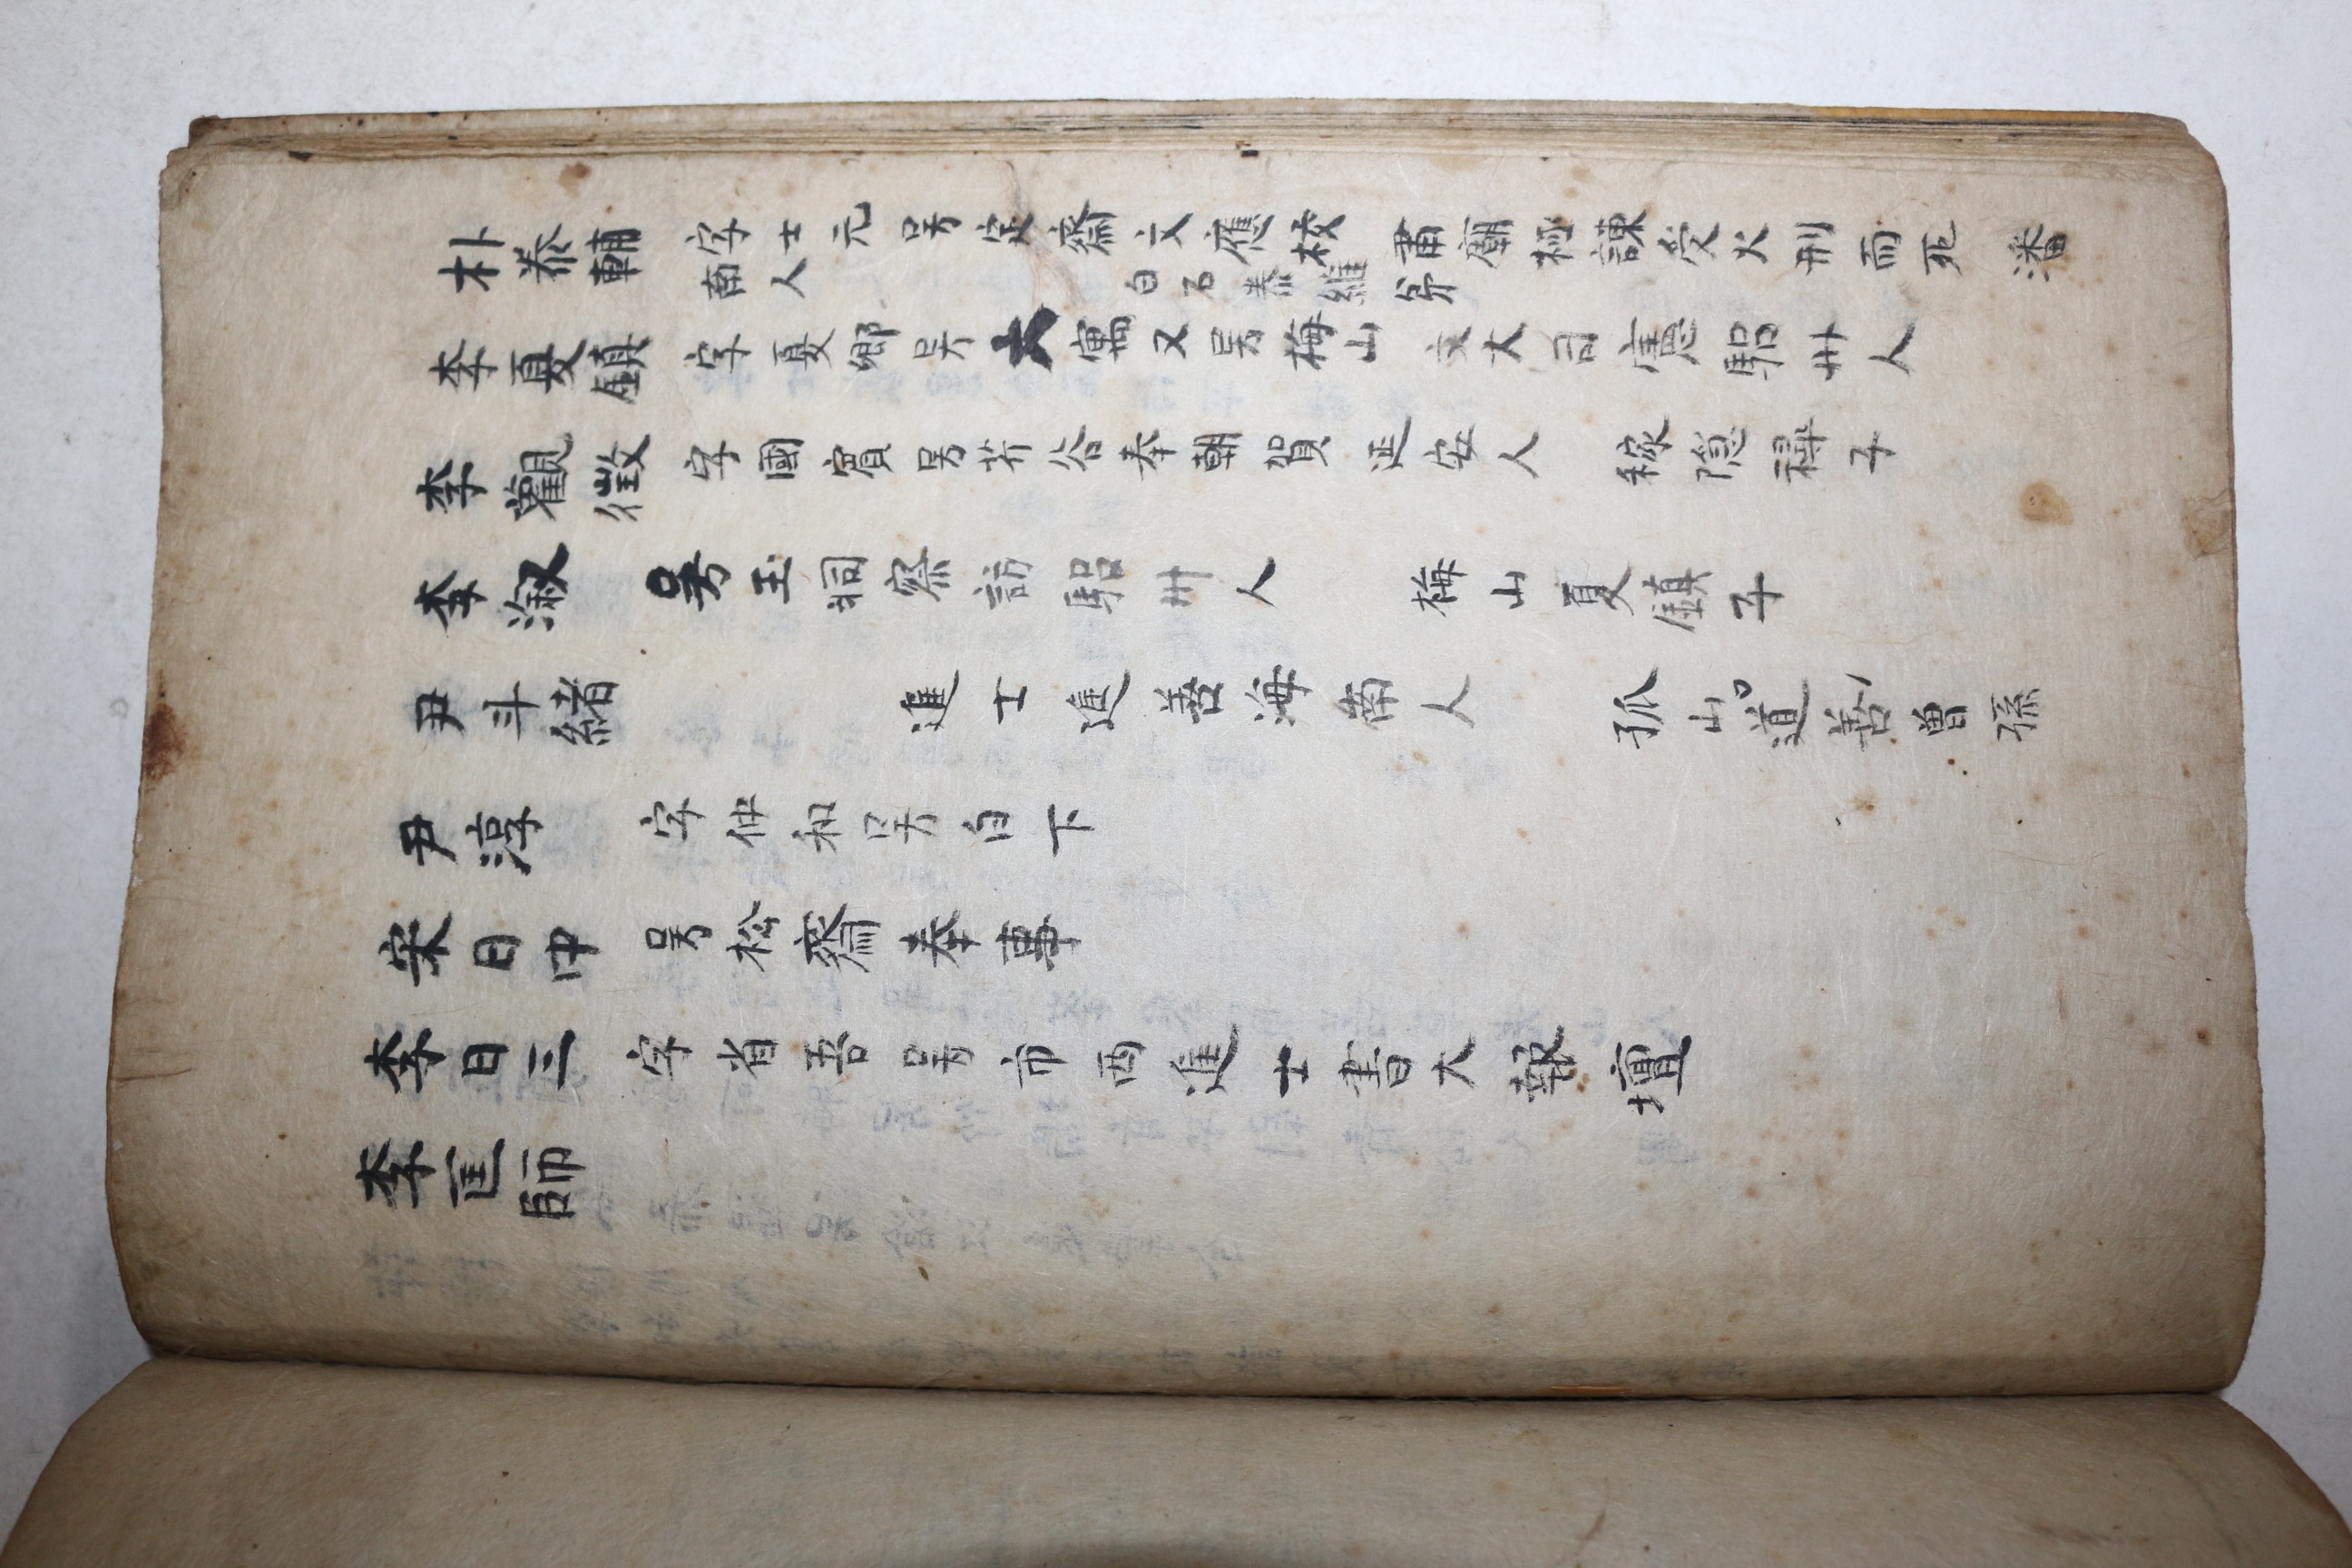 朴泰輔 字士元号定齋文應校 肅廟極諫受火刑而死 潘
南人 白石泰維弟
李夏鎭 字夏卿号六寓又号梅山 文大司憲驪州人
李觀徵 字國賓号芥谷奉朝賀延安人 稼隠襑子
李溆 号玉洞察訪驪州人 梅山夏鎭子
尹斗緖 進士進善海南人 孤山道善曽孫
尹淳 字仲和号白下
宋日中 号松齋奉事
李日三 字省吾号市西進士書大報壇
李匡師